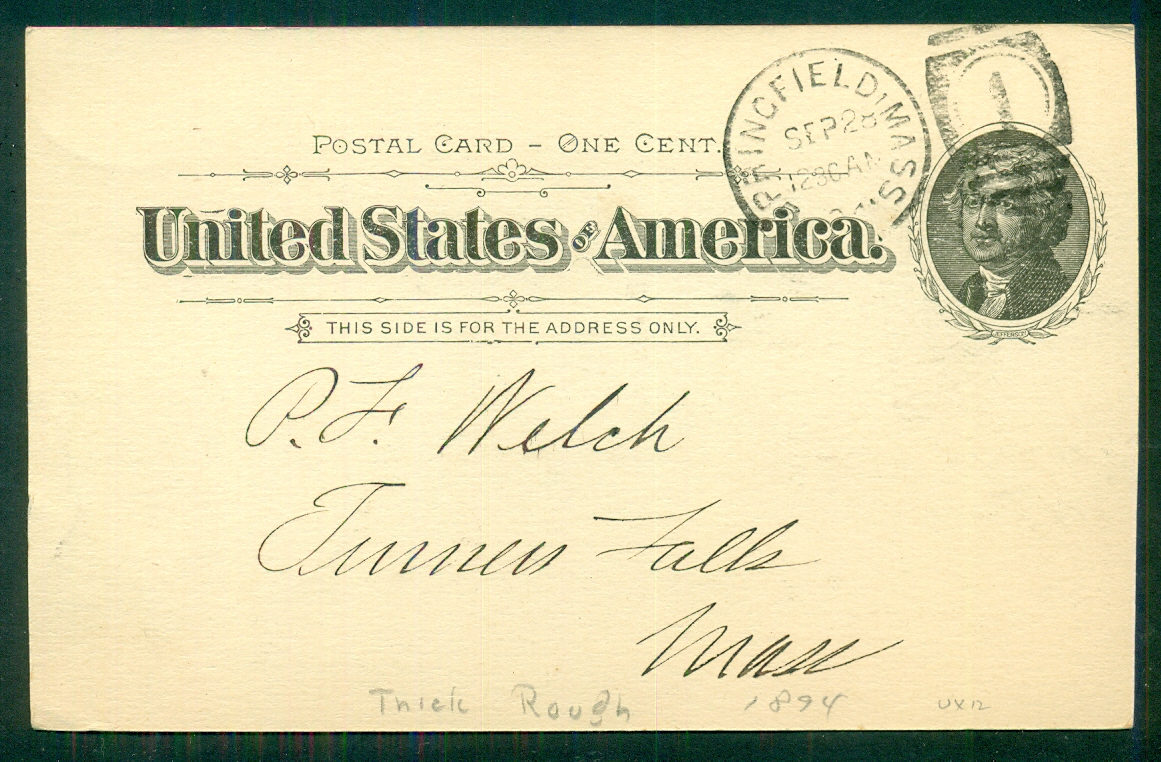 POSTAL CARD – ONE CENT.
United States OF America.
THIS SIDE IS FOR THE ADDRESS ONLY.
SPRINGFIELD, MASS
SEP 28
1230 AM
1
JEFFERSON
P. F. Welch
Turners Falls
Mass
Thick Rough 1894 UX12